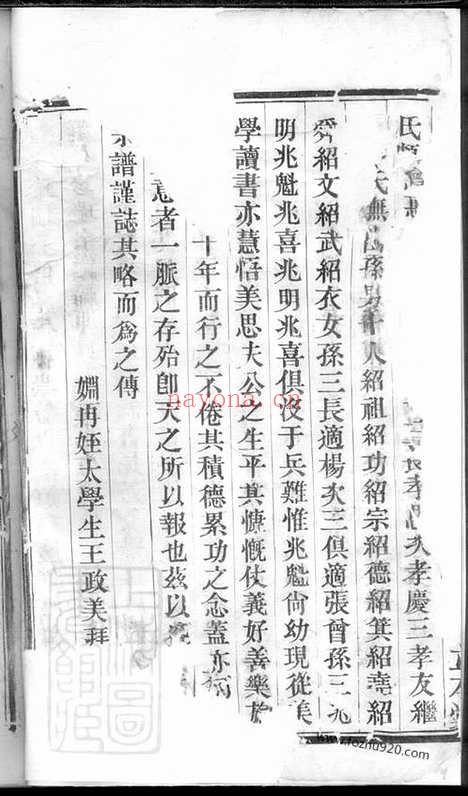 孝慶三孝友繼
氏無孫男十人紹祖紹功紹宗紹德紹箕紹燾紹
爵紹文紹武紹衣女孫三長適楊次三俱適張曾孫三兆
明兆魁兆喜兆明兆喜俱沒于兵難惟兆魁尙幼現從美
學讀書亦慧悟美思夫公之生平其慷慨仗義好善樂於
十年而行之不倦其積德累功之念蓋亦
意者一脈之存殆卽天之所以報也茲以
譜謹誌其略而爲之傳
姻再姪太學生王政美拜
nayona.cn
www.fozhu920.com